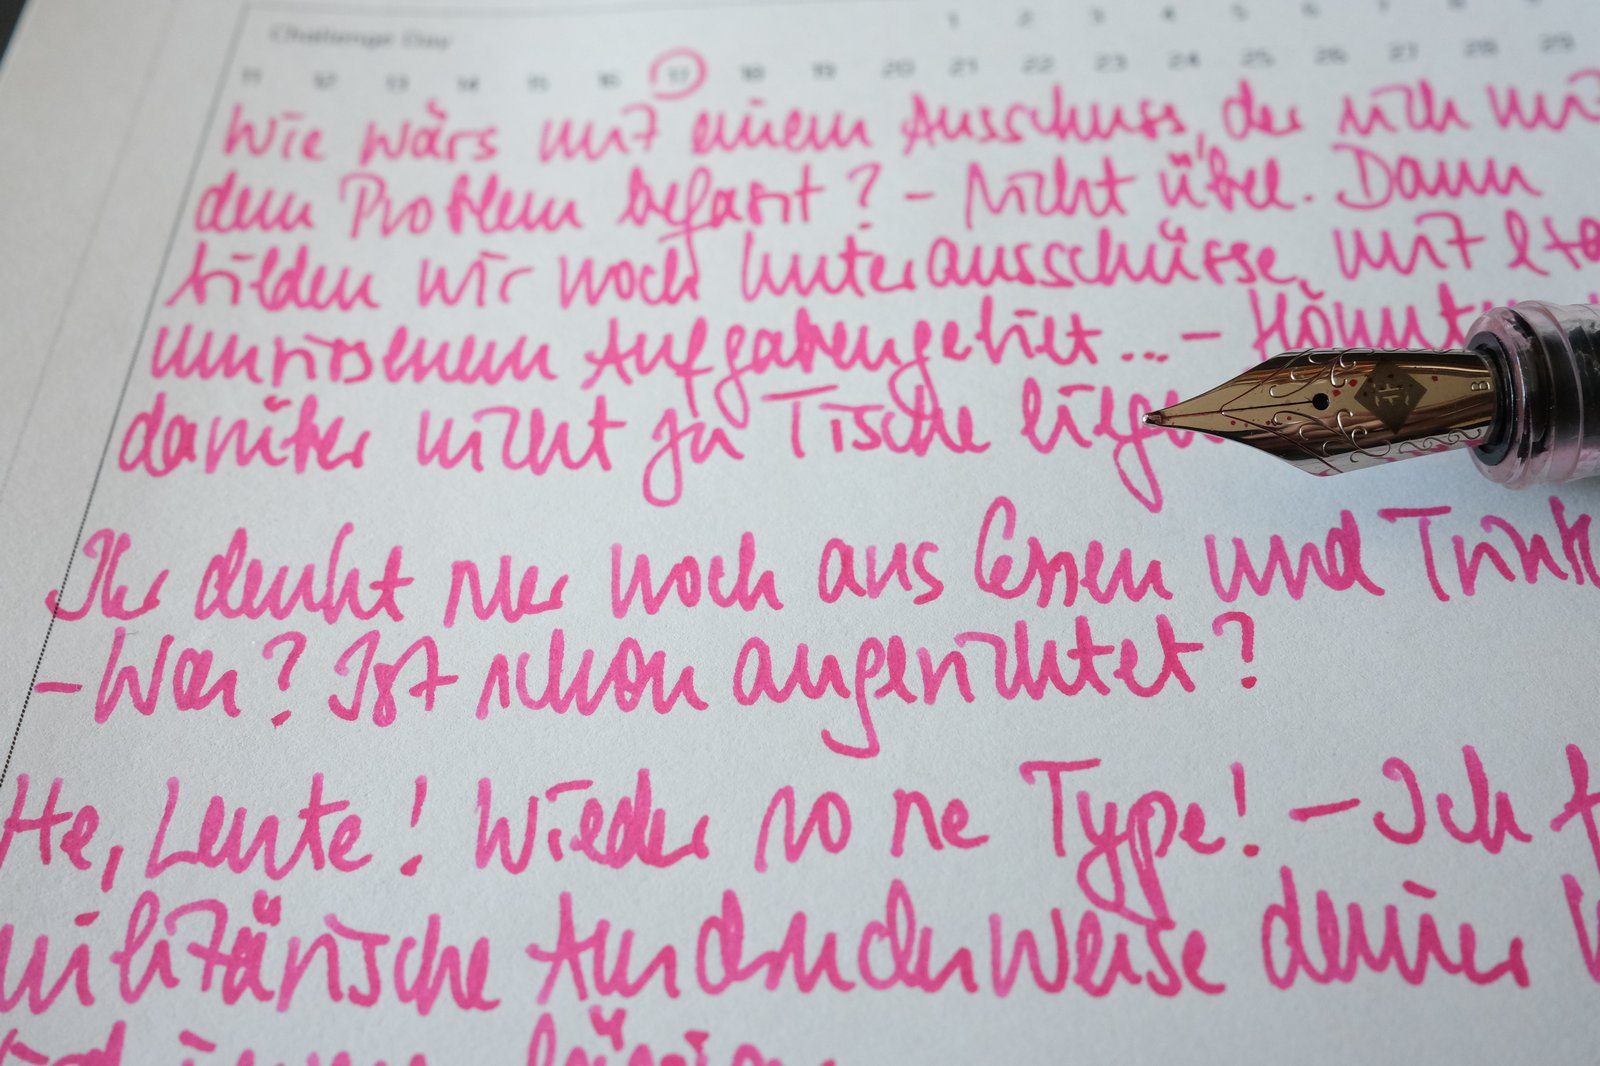 Challenge Day
1 2 3 4 5 6 7 8 9
11 12 13 14 15 16 17 18 19 20 21 22 23 24 25 26 27 28 29
Wie wärs mit einem Ausschuss, der sich mit
dem Problem befasst? – Nicht übel. Dann
bilden wir noch Unterausschüsse, mit
umrissenem Aufgabengebiet... –
darüber nicht zu Tische
Ihr denkt
noch ans Essen und
– Was? Ist schon angerichtet?
He, Leute! Wieder so ne Type! – Ich
militärische Ausdrucksweise deiner